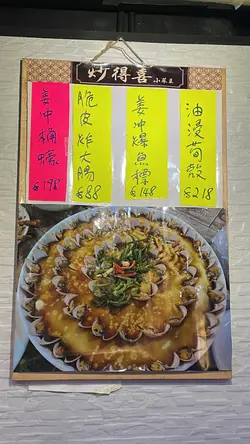 炒得喜小菜王
姜冲桶蠔
$198
脆皮炸大腸
$88
姜冲爆魚標
$148
油浸荀殼
$218